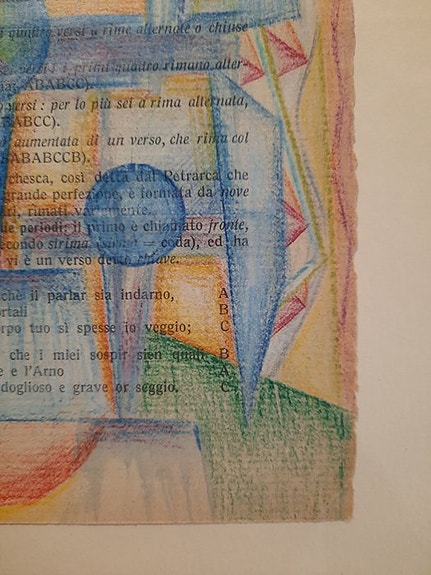 quattro versi a rime alternate o chiuse
versi: i primi quattro rimano alter-
ABABCC).
versi: per lo più sei a rima alternata,
BABCC).
aumentata di un verso, che rima col
ABABCCB).
chesca, così detta dal Petrarca che
grande perfezione, è formata da nove
ri, rimati variamente.
due periodi: il primo è chiamato fronte,
econdo sirima = coda), ed ha
vi è un verso detto chiave.
che il parlar sia indarno, A
ortali B
orpo tuo sì spesse io veggio; C
che i miei sospir sien quali B
e e l'Arno A
doglioso e grave or seggio. C